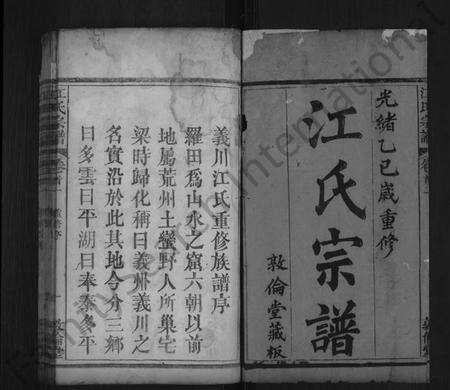 光緒乙巳歲重修
江氏宗譜
敦倫堂藏板
義川江氏重修族譜序
羅田為山水之窟六朝以前
地屬荒州土蠻野人所巢宅
梁時歸化稱曰義州義川之
名實沿於此其地今分三鄉
曰多雲曰平湖曰奉泰多平
江氏宗譜